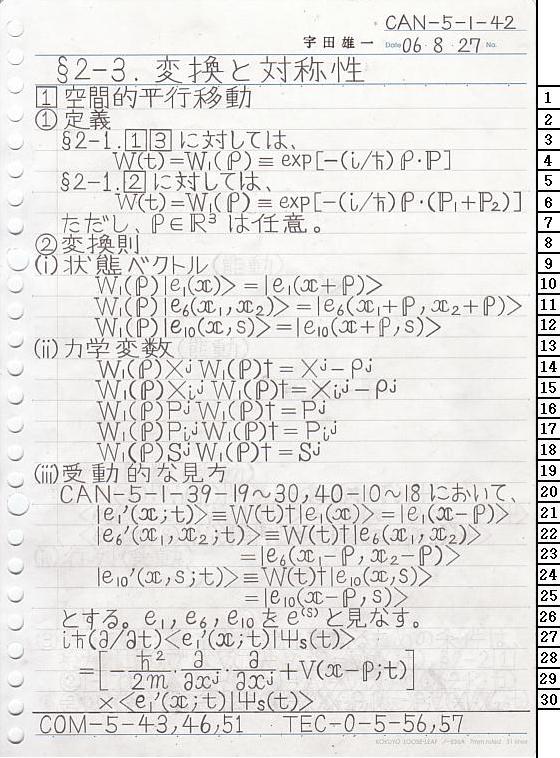 CAN-5-1-42
宇田雄一 Date 06・8・27 No.
§2-3. 変換と対称性
1 空間的平行移動
① 定義
§2-1. 1 3 に対しては、
W(t)=W₁(ρ)≡exp[-(i/ħ)ρ·ℙ]
§2-1. 2 に対しては、
W(t)=W₁(ρ)≡exp[-(i/ħ)ρ·(ℙ₁+ℙ₂)]
ただし、ρ∈ℝ³ は任意。
② 変換則
(i) 状態ベクトル
W₁(ρ)|e₁(x)>=|e₁(x+ρ)>
W₁(ρ)|e₆(x₁,x₂)>=|e₆(x₁+ρ,x₂+ρ)>
W₁(ρ)|e₁₀(x,s)>=|e₁₀(x+ρ,s)>
(ii) 力学変数
W₁(ρ)Xʲ W₁(ρ)†=Xʲ-ρʲ
W₁(ρ)Xᵢʲ W₁(ρ)†=Xᵢʲ-ρʲ
W₁(ρ)Pʲ W₁(ρ)†=Pʲ
W₁(ρ)Pᵢʲ W₁(ρ)†=Pᵢʲ
W₁(ρ)Sʲ W₁(ρ)†=Sʲ
(iii) 受動的な見方
CAN-5-1-39-19～30,40-10～18 において、
|e₁'(x;t)>≡W(t)†|e₁(x)>=|e₁(x-ρ)>
|e₆'(x₁,x₂;t)>≡W(t)†|e₆(x₁,x₂)>
=|e₆(x₁-ρ,x₂-ρ)>
|e₁₀'(x,s;t)>≡W(t)†|e₁₀(x,s)>
=|e₁₀(x-ρ,s)>
とする。e₁,e₆,e₁₀ を e⁽ˢ⁾ と見なす。
iħ(∂/∂t)<e₁'(x;t)|Ψs(t)>
=[-ħ²/2m ∂/∂xʲ·∂/∂xʲ+V(x-ρ;t)]
×<e₁'(x;t)|Ψs(t)>
COM-5-43,46,51 TEC-0-5-56,57
1
2
3
4
5
6
7
8
9
10
11
12
13
14
15
16
17
18
19
20
21
22
23
24
25
26
27
28
29
30